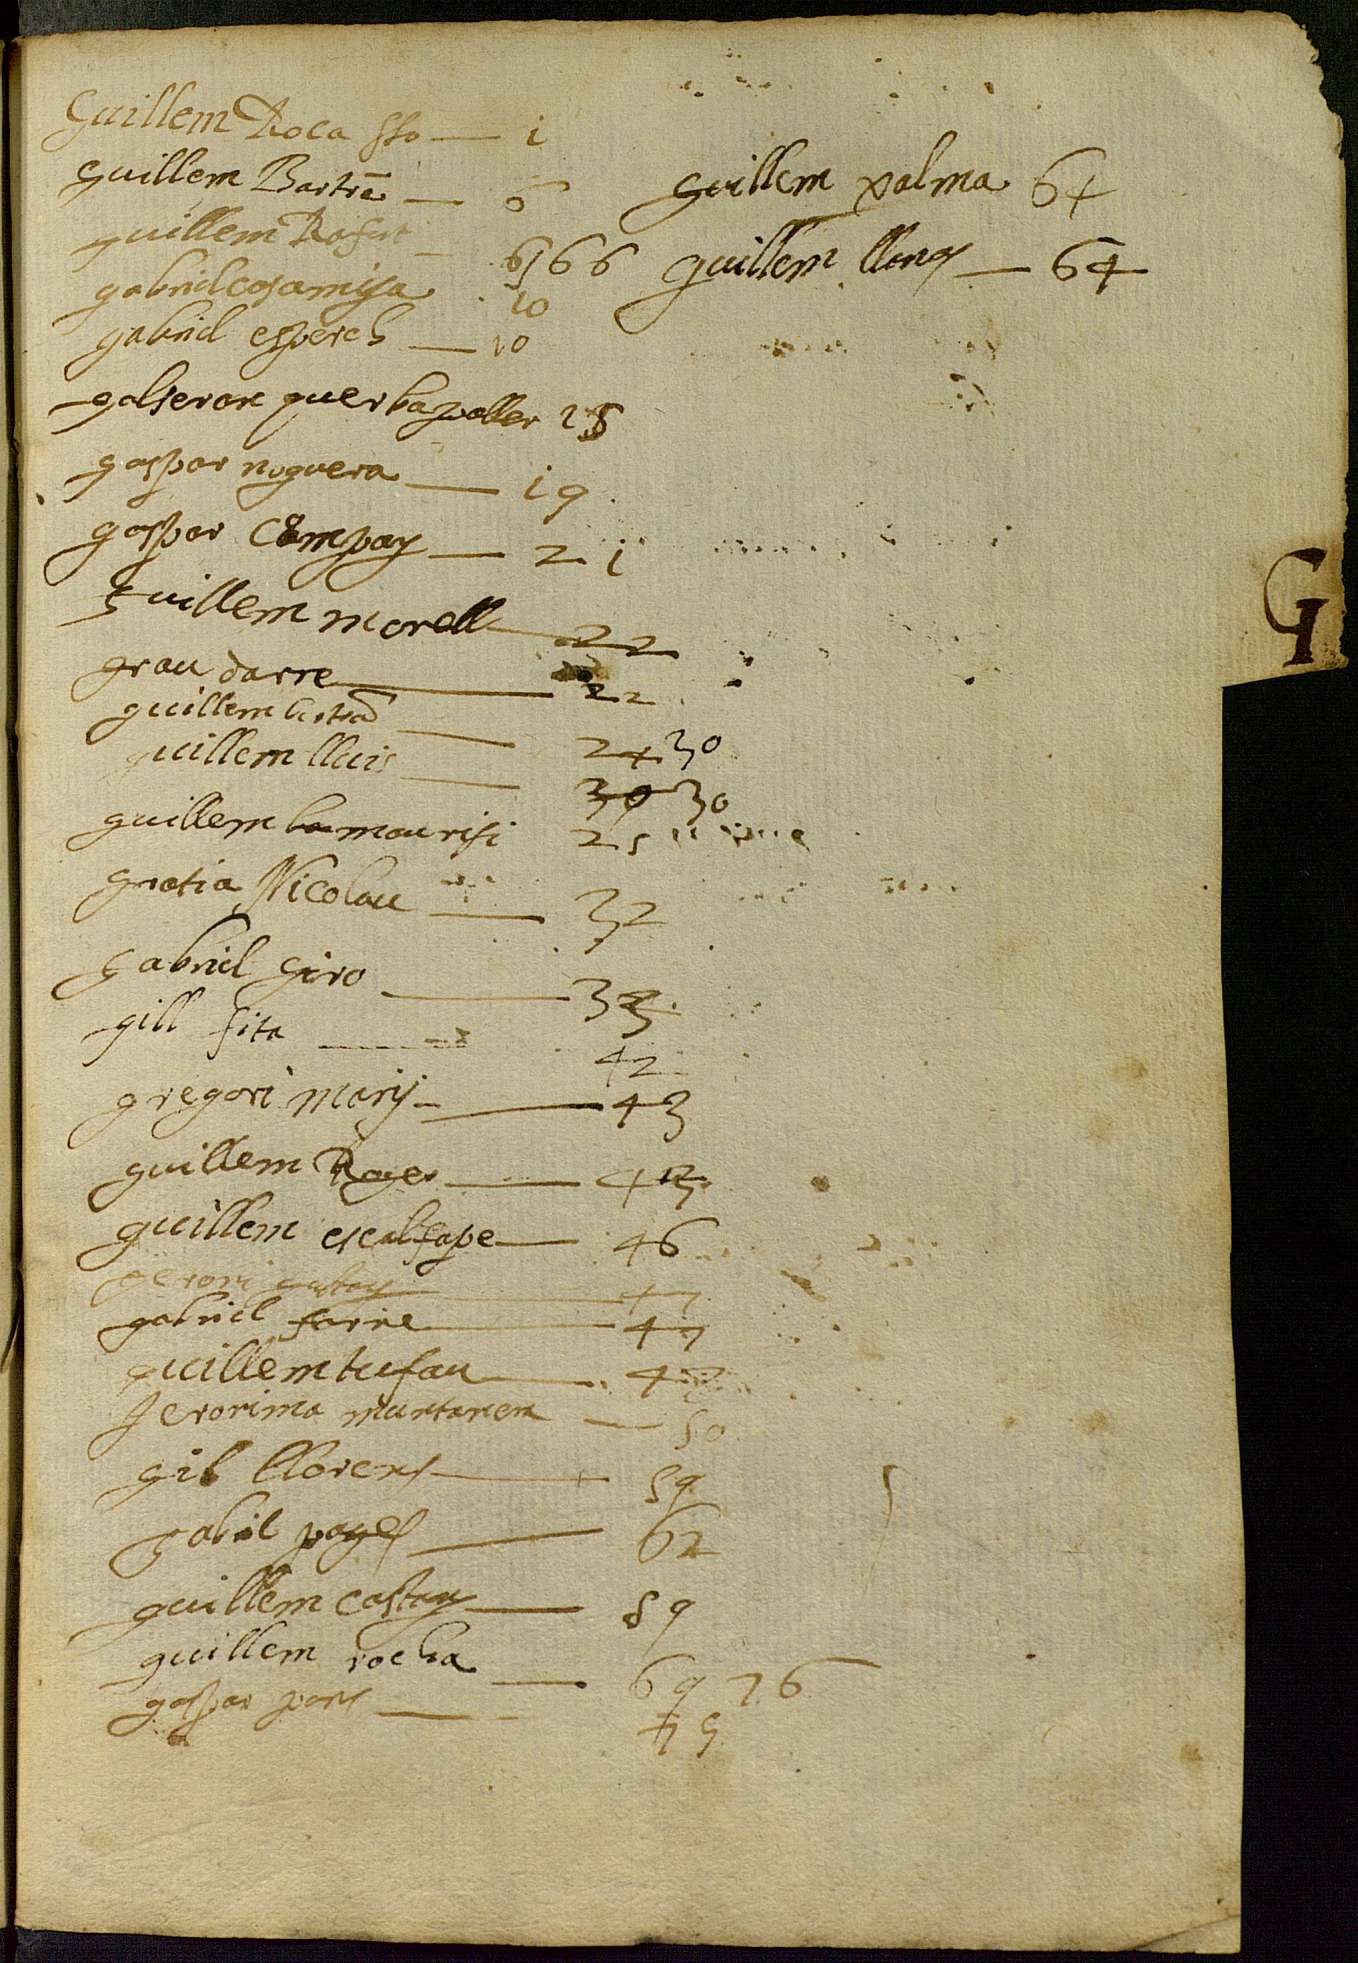 Guillem Roca sso — i
guillem Bartrã — 6
guillem Rofut — 65 66
gabriel casamija 10
gabriel esperch — 10
galseran querbapaller 15
gaspar noguera — 19
gaspar Company — 21
guillem morell — 22
grau darre — 22
guillem bertrã — 24 30
guillem lluis — 30 30
guillem mourisi 25
gratia Nicolau — 32
gabriel giro — 33
gill fita — 42
gregori marij — 43
guillem Roger — 43
guillem escalfape — 46
47
gabriel farre — 47
guillem tufau — 47
Jeronima muntaner — 50
gil llorens — 59
gabriel pages — 62
guillem castay — 59
guillem rocha — 69 76
gaspar pons — 75
guillem palma 64
guillem llong — 64
G